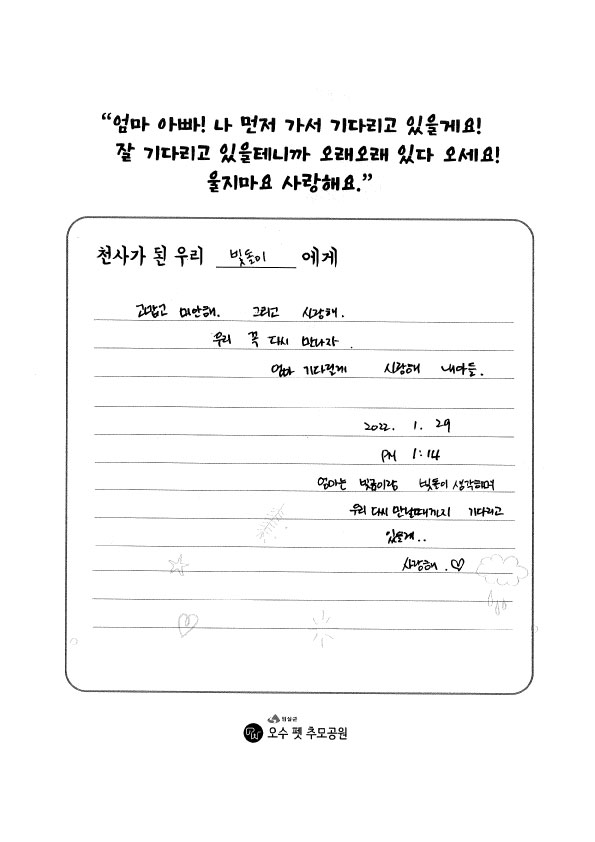 “엄마 아빠! 나 먼저 가서 기다리고 있을게요!
잘 기다리고 있을테니까 오래오래 있다 오세요!
울지마요 사랑해요.”
천사가 된 우리 빛돌이 에게
고맙고 미안해. 그리고 사랑해.
우리 꼭 다시 만나자.
엄마 기다릴게 사랑해 내아들.
2022. 1. 29
PM 1:14
엄마는 빛돌이 생각하며
우리 다시 만날때까지 기다리고
있을게..
사랑해.♡
임실군
오수 펫 추모공원